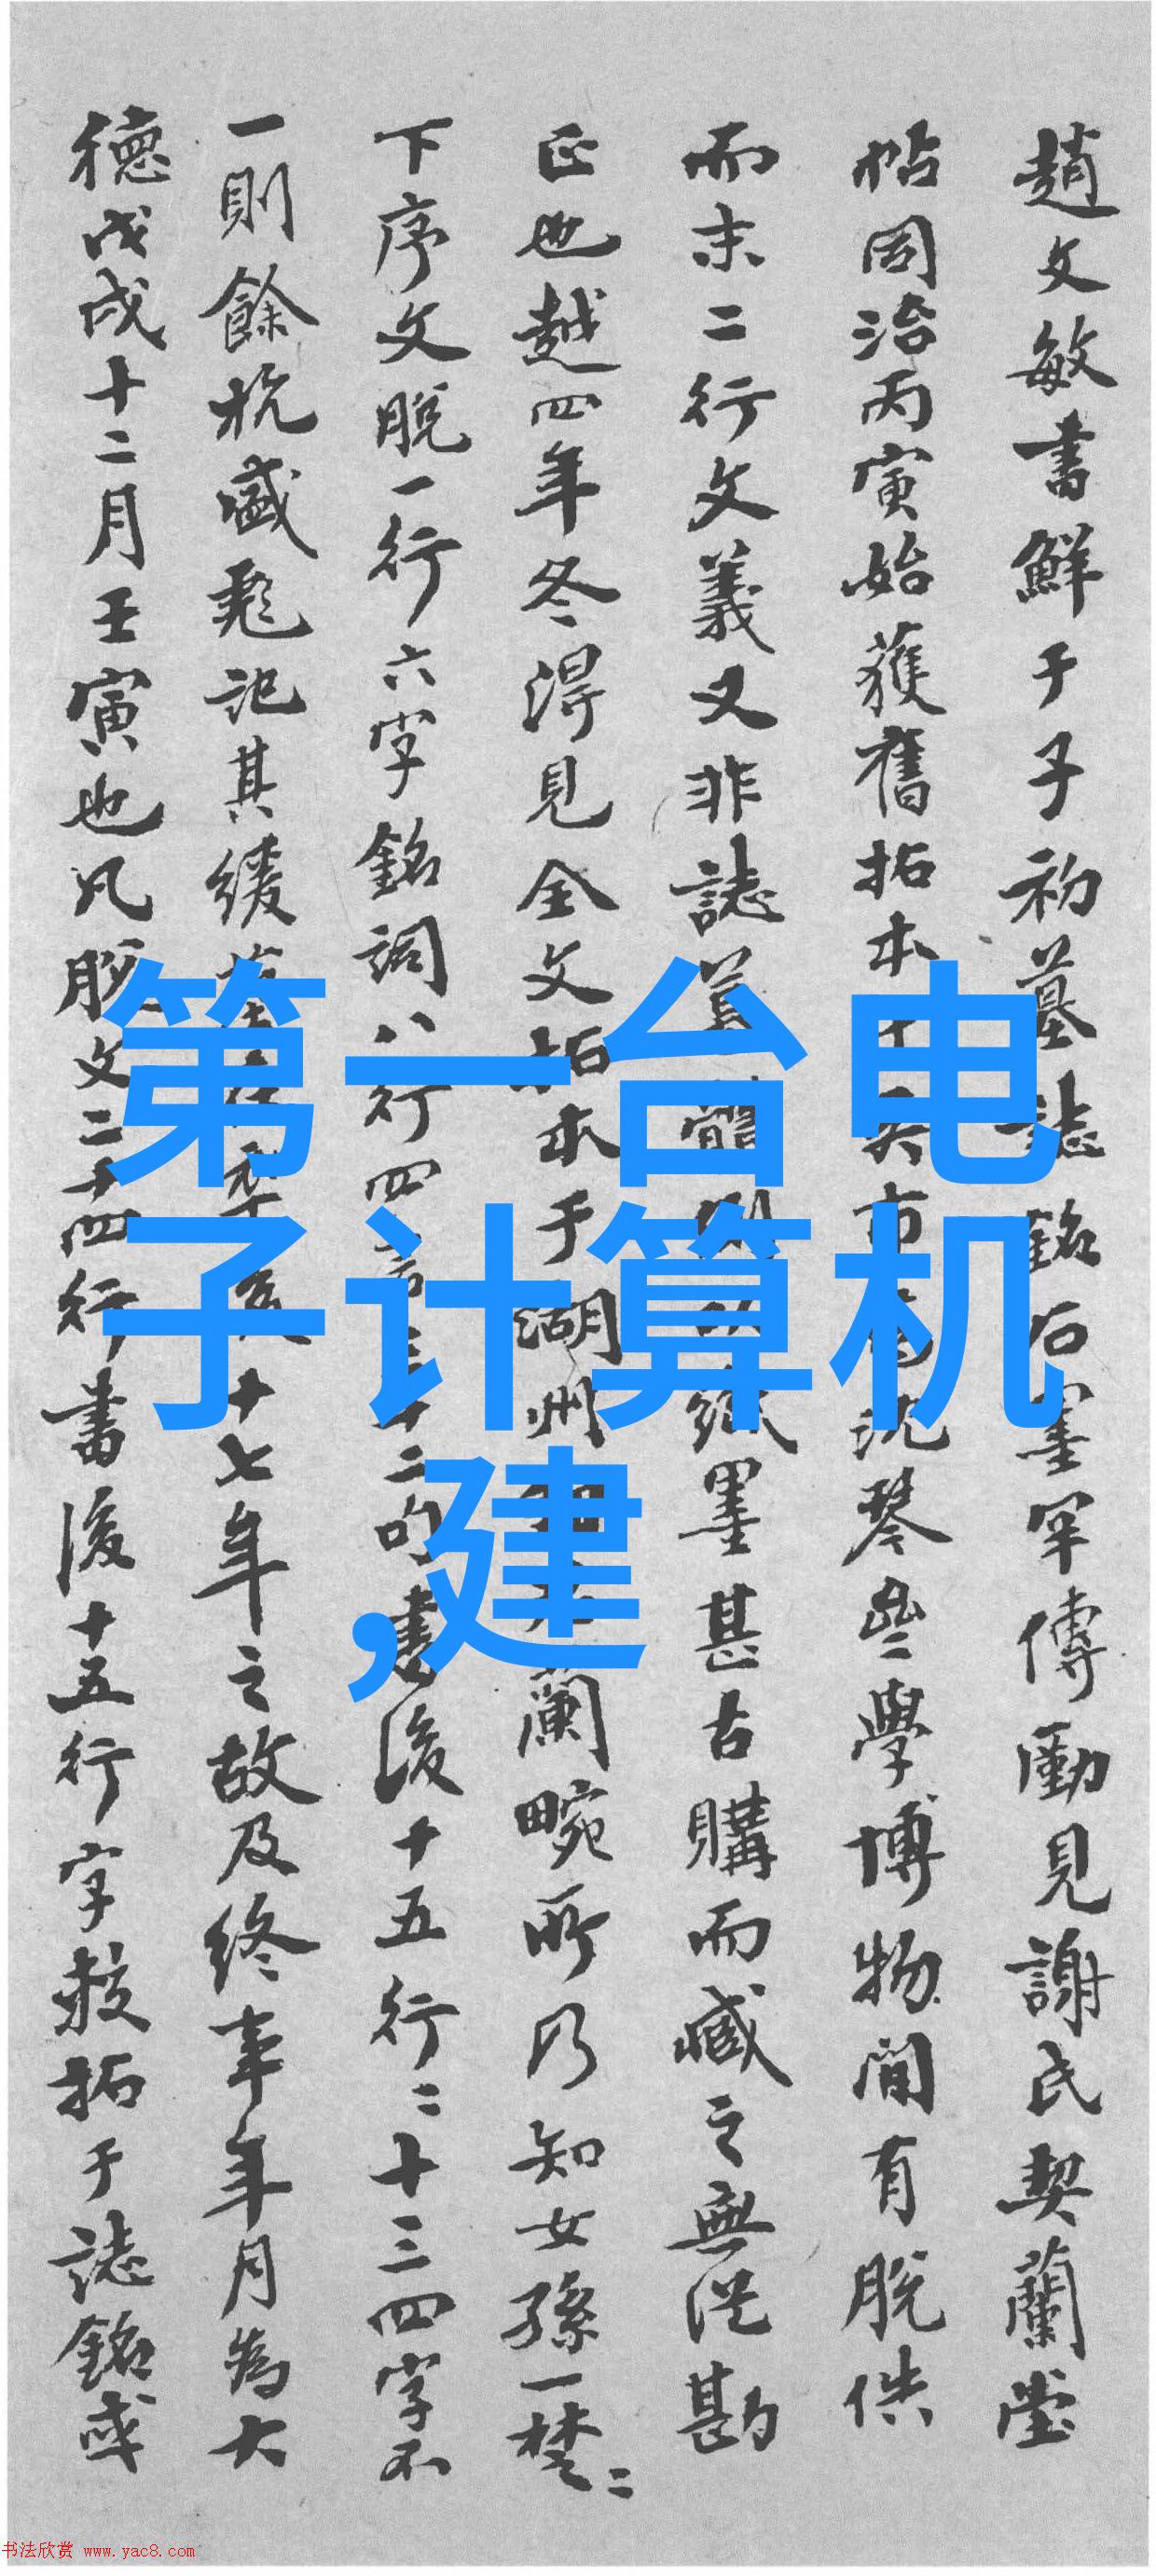 趙文敏書鮮于子初墓誌銘石墨罕傳勵見謝氏契蘭堂
帖同治丙寅始獲舊拓本市沈琴學博物間有脫佚
而末二行文義又非誌紙墨甚古購而臧之無從勘
正也越四年冬得見全文拓本于湖州蘭畹所乃知女孫一楚二
下序文脫一行六字銘詞八行四言三十二句書後十五行二十三四字不
一則餘杭盛彪記其緩十七年之故及終事年月為大
德戊戌十二月壬寅也凡脫文二十四行書後十五行字敍拓于誌銘或
第一台电
子计算机
,建
书法欣赏 www.yac8.com